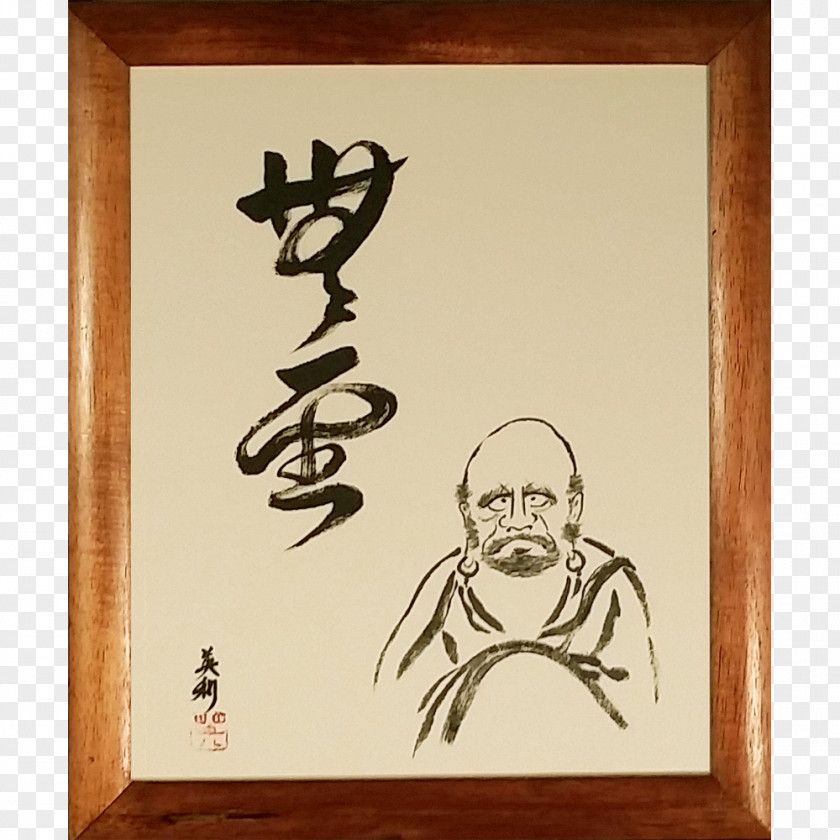 無雲
英利